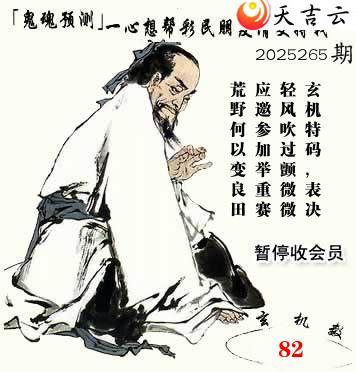 天吉云
「鬼魂预测」一心想帮彩民朋
2025265期
玄机特码，表决
轻风吹过颤微微
应邀参加举重赛
荒野何以变良田
暂停收会员
玄机数
82